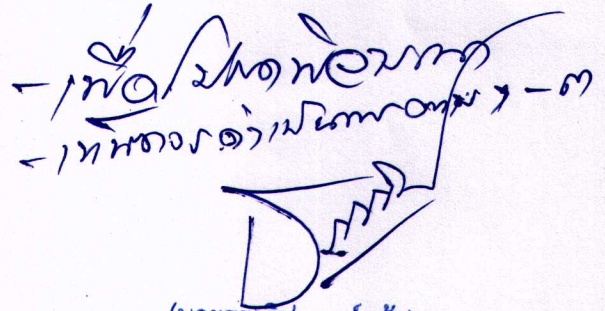 - เพื่อโปรดพิจารณา
- เห็นควรดำเนินการตามข้อ ๑ - ๓